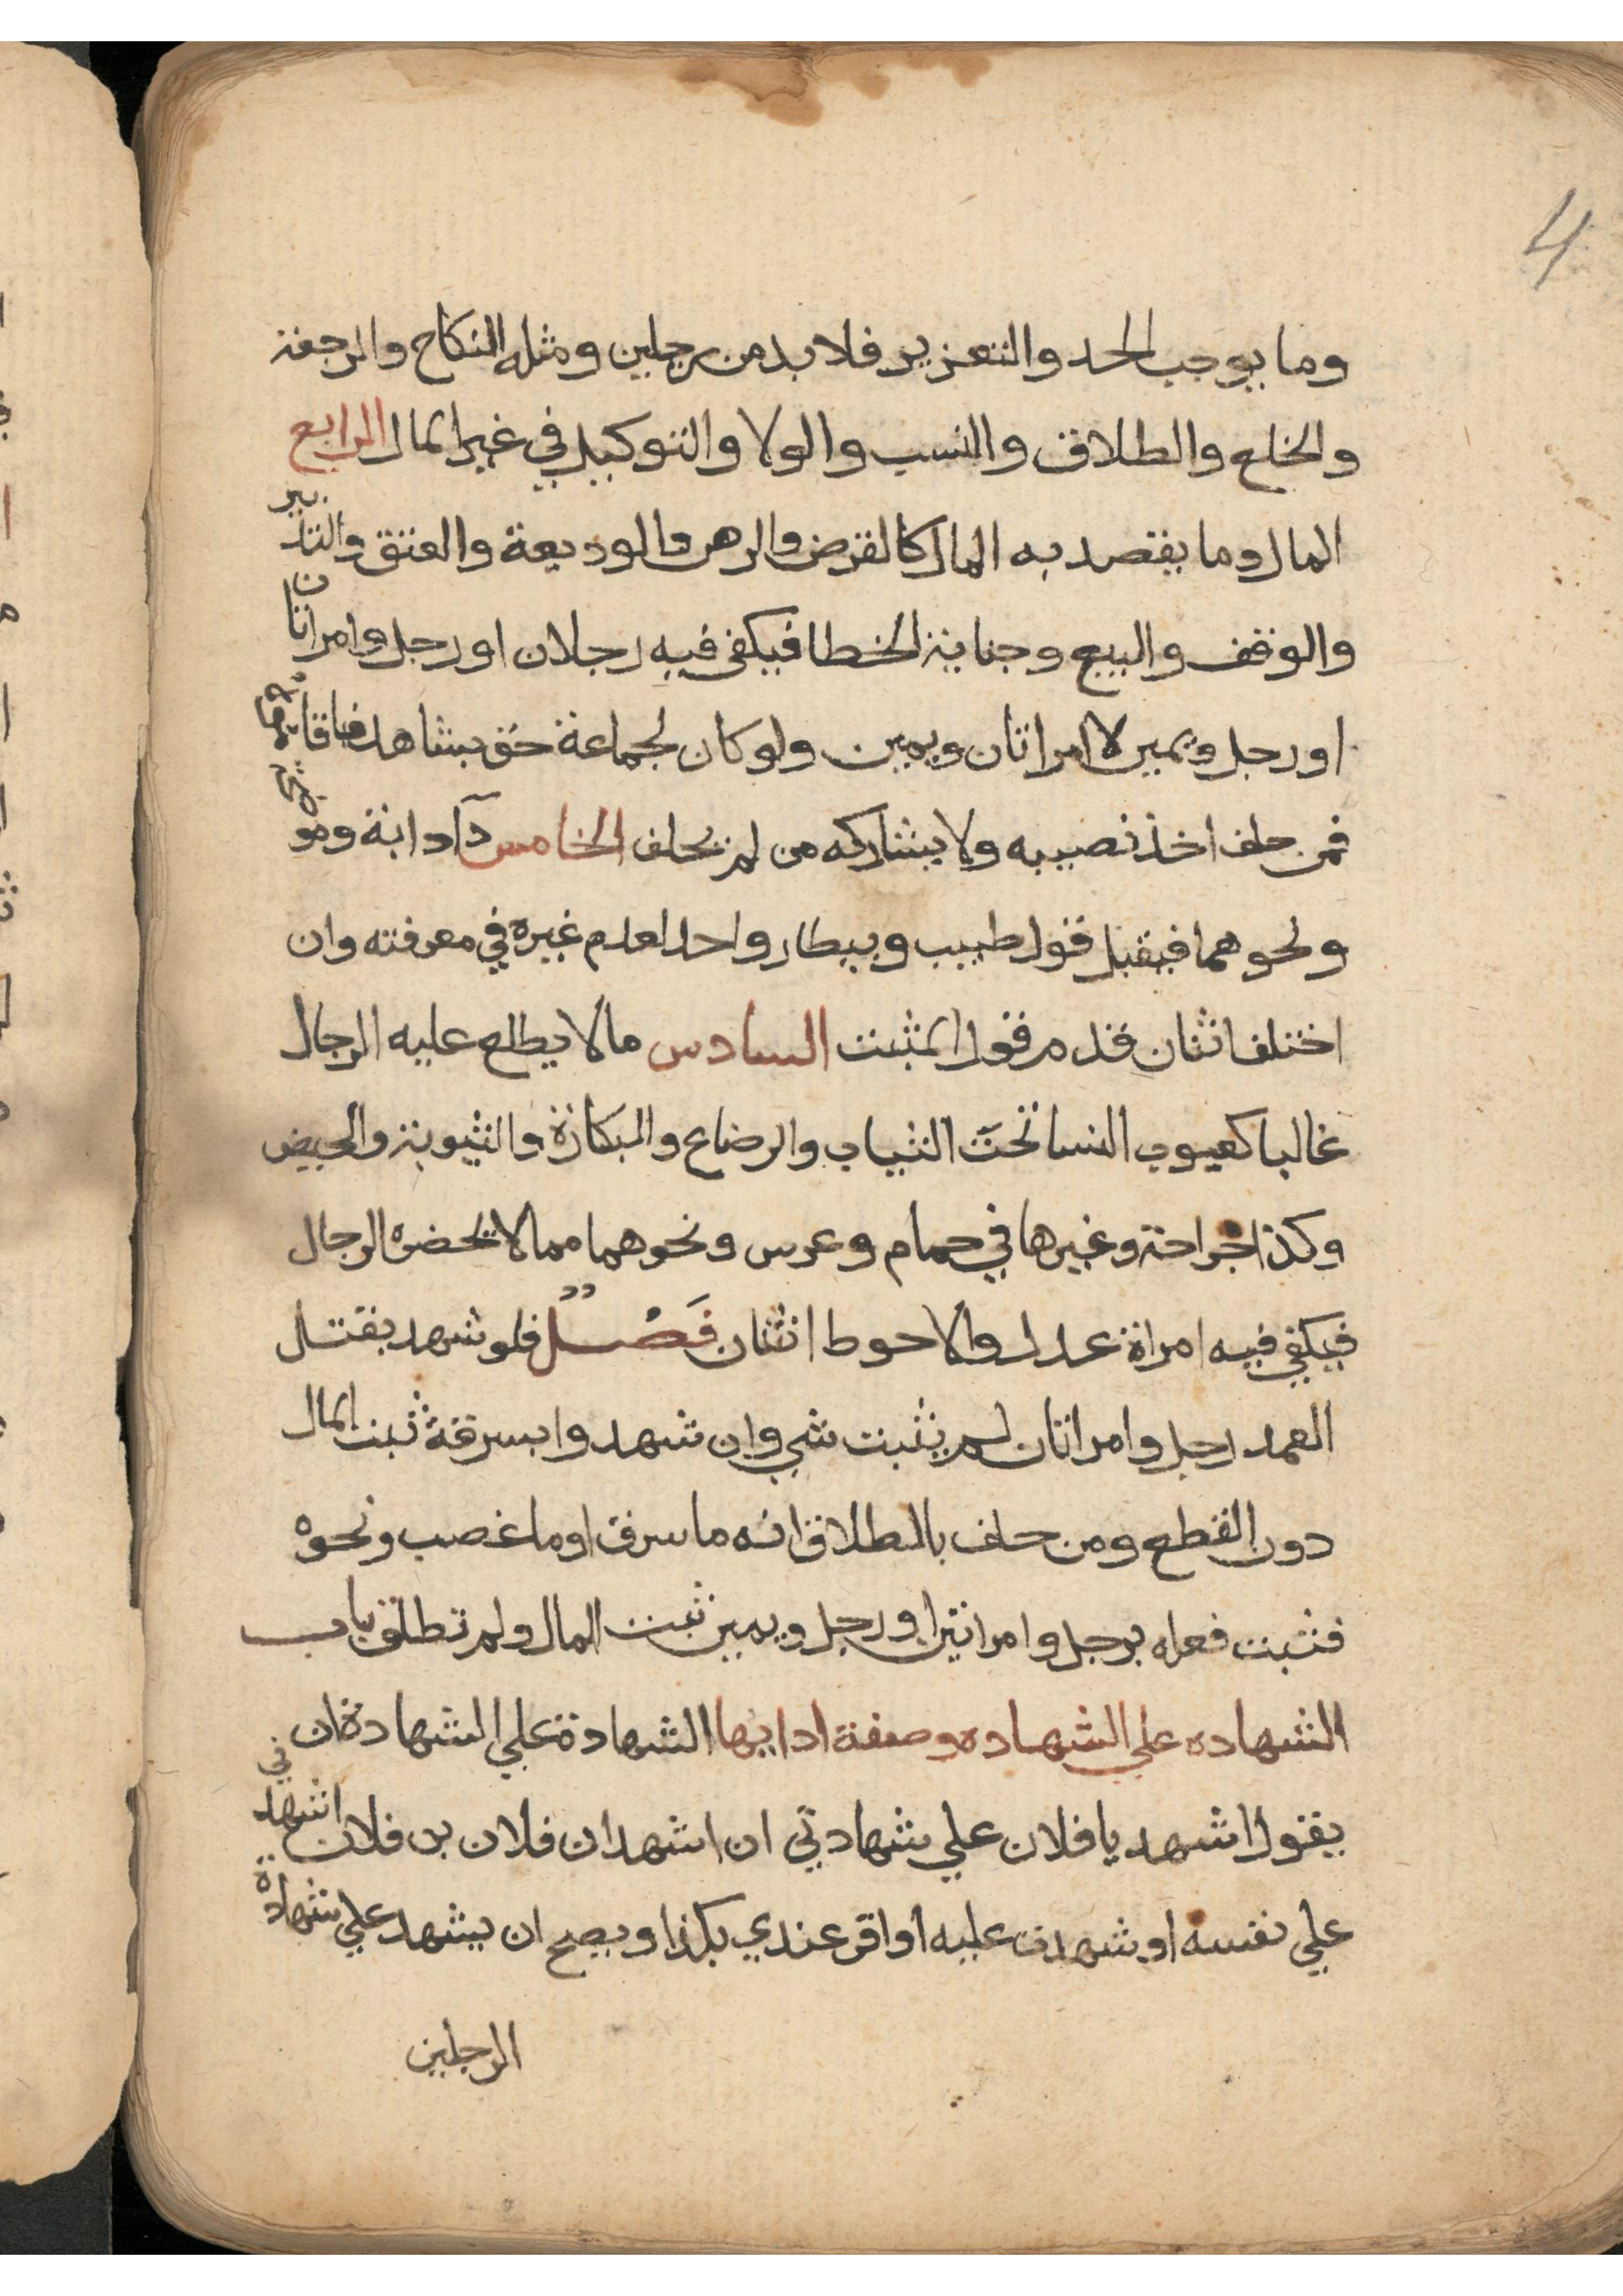 4
وما يوجب الحد والتعزير فلا بد من رجلين ومثله النكاح والرجعة
والخلع والطلاق والنسب والولا والتوكيل في غير المال الرابع
المال وما يقصد به المال كالقرض والرهن والوديعة والعتق والتدبير
والوقف والبيع وجناية الخطا فيكفي فيه رجلان او رجل وامراتان
او رجل ويمين لا امراتان ويمين ولو كان لجماعة حق بشاهد فاقاموه
فمن حلف اخذ نصيبه ولا يشاركه من لم يحلف الخامس دآ دابة و
ونحوهما فيقبل قول طبيب وبيطار واحد لعدم غيره في معرفته وان
اختلف اثنان قدم قول المثبت السادس مالا يطلع عليه الرجال
غالبا كعيوب النسا تحت الثياب والرضاع والبكارة والثيوبة والحيض
وكذا جراحة وغيرها في حمام وعرس ونحوهما مما لا تحضره الرجال
فيكفي فيه امراة عدل والاحوط اثنتان فَصْلٌ فلو شهد بقتل
العمد رجل وامراتان لم يثبت شي وان شهدوا بسرقة ثبت المال
دون القطع ومن حلف بالطلاق انه ما سرق او ما غصب ونحوه
فثبت فعله برجل وامراتين او رجل ويمين ثبت المال ولم تطلق باب
الشهاده علي الشهاده وصفة ادايها الشهادة علي الشهادة ان
يقول اشهد يا فلان علي شهادتي ان اشهد ان فلان بن فلان اشهدني
علي نفسه او شهدت عليه او اقر عندي بكذا ويصح ان يشهد علي شهادة
الرجلين